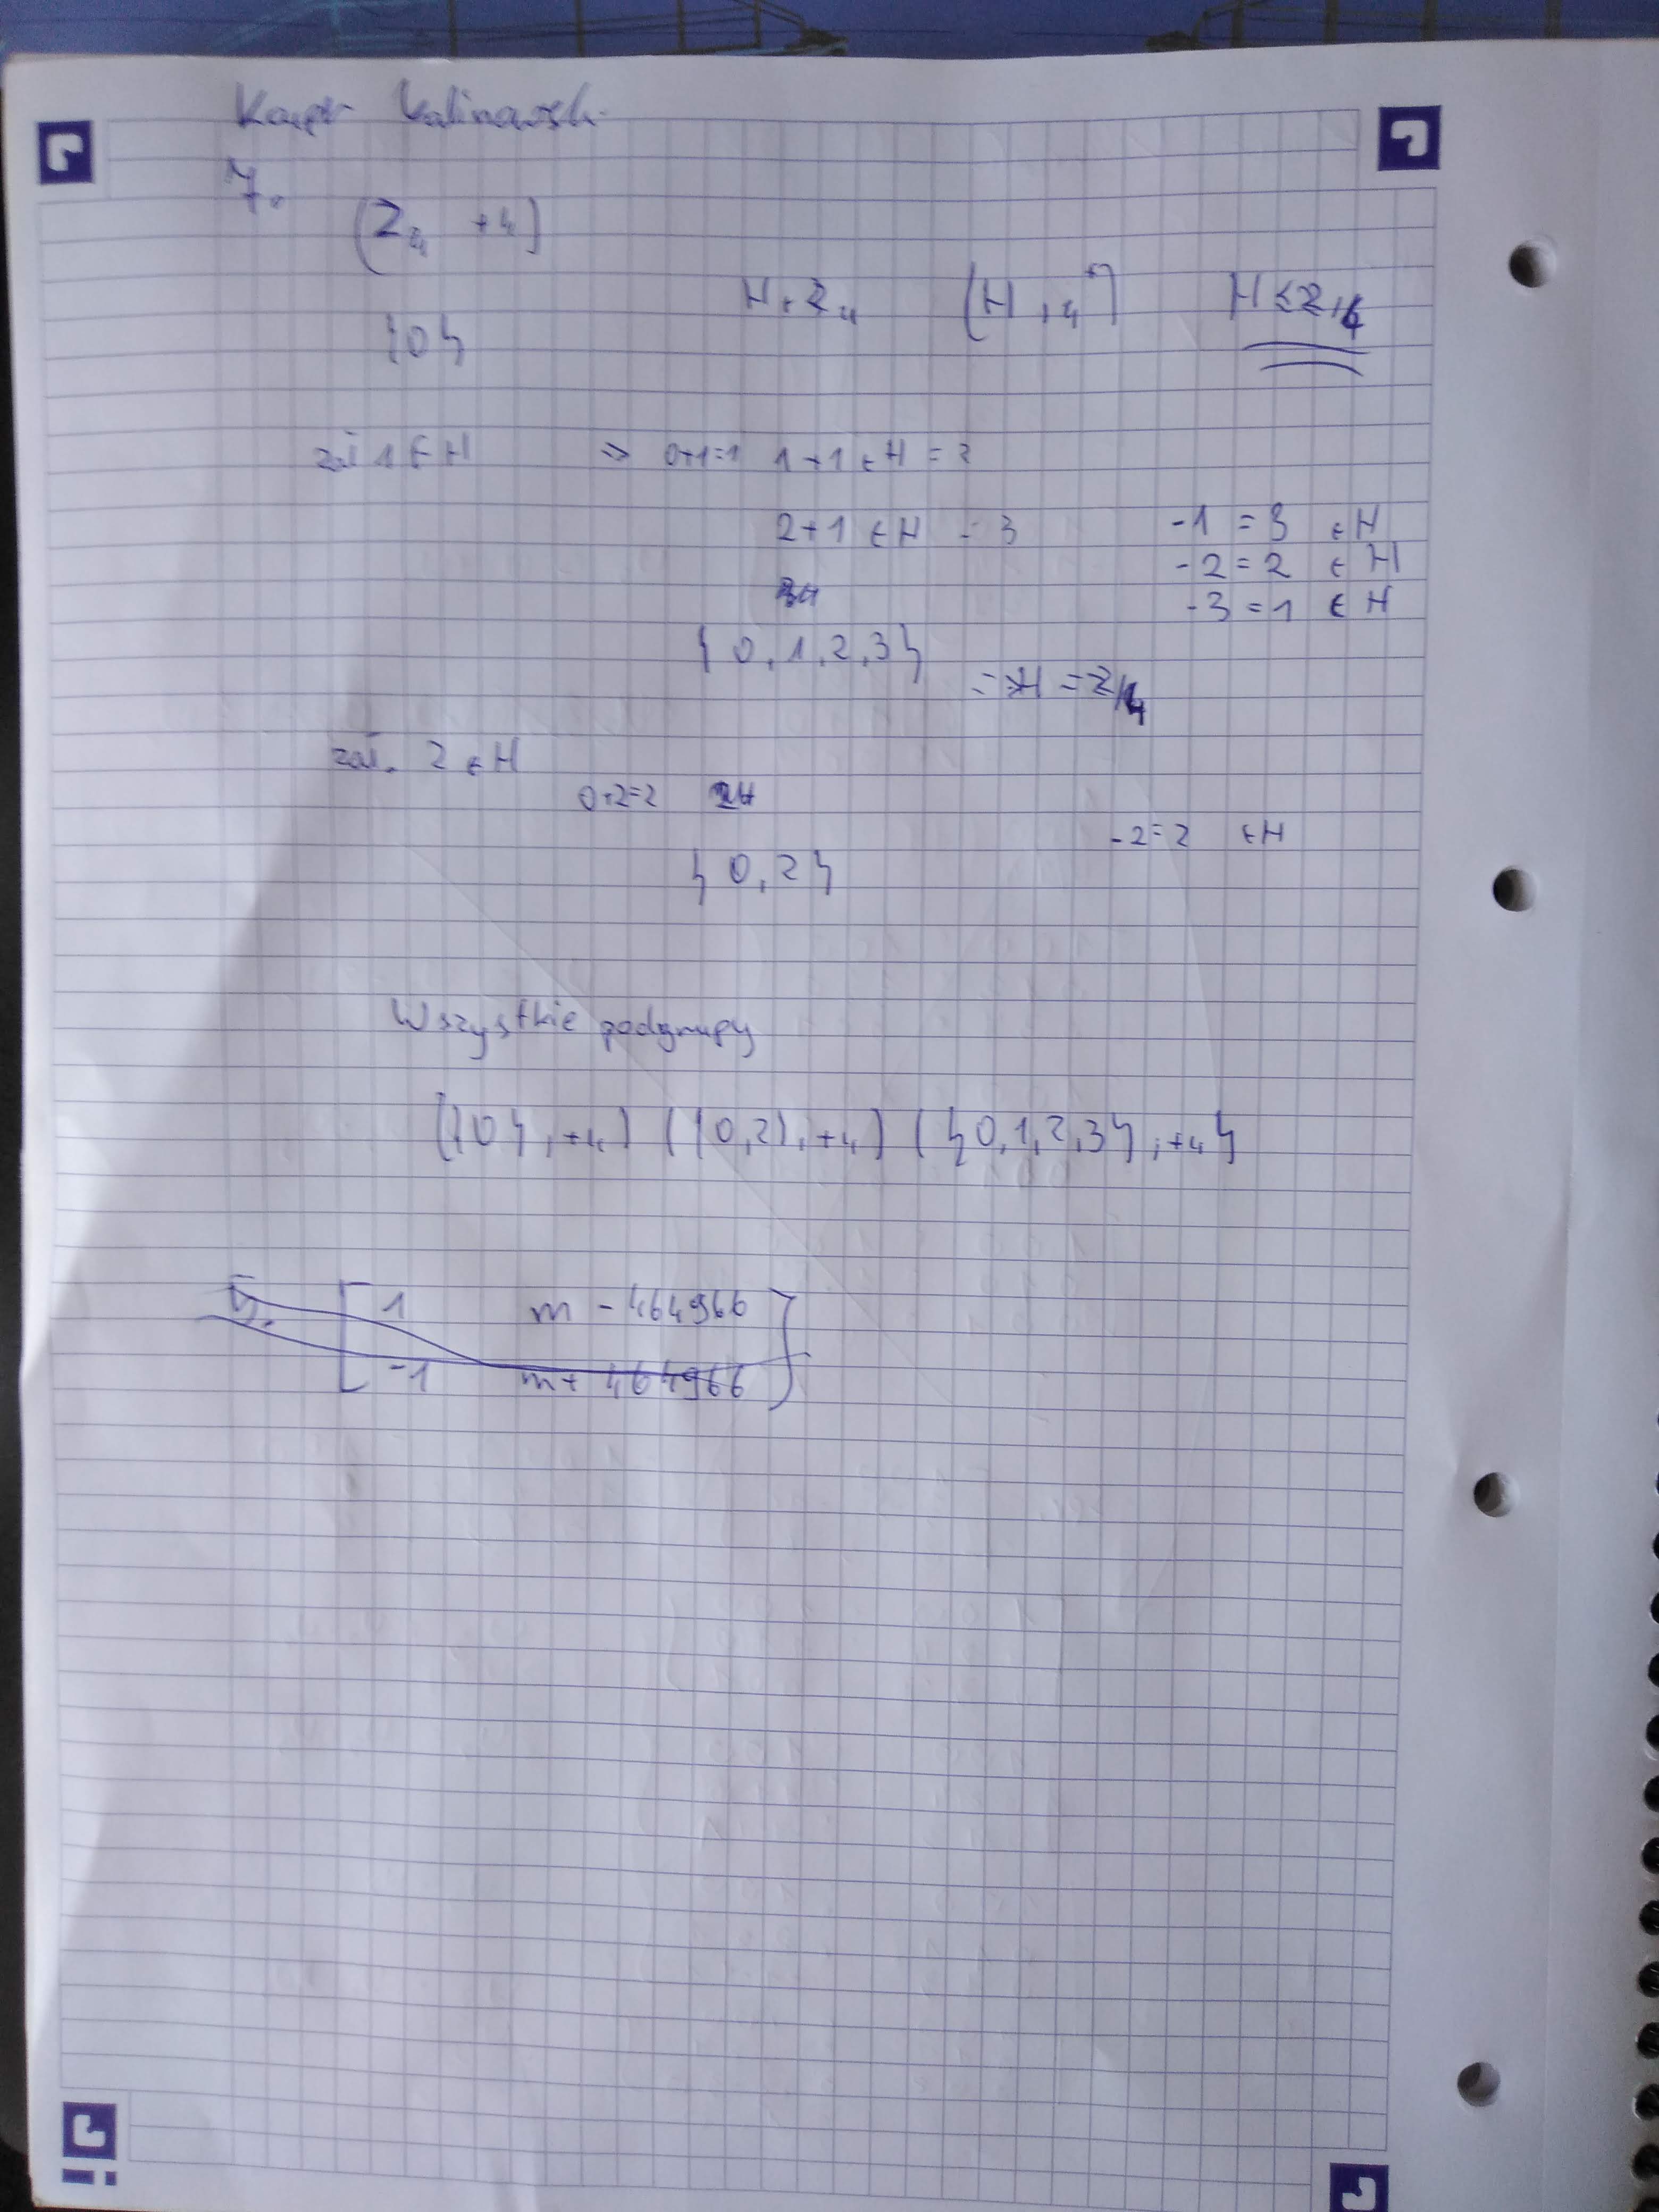 7.
(Z₄ +₄)
H ≤ Z₄
{0}
zał 1 ∈ H ⇒ 0+1=1 1+1 ∈ H = 2
2+1 ∈ H = 3 -1 = 3 ∈ H
-2 = 2 ∈ H
-3 = 1 ∈ H
{0,1,2,3}
= H = Z₄
zał. 2 ∈ H
0+2=2
-2=2 ∈ H
{0,2}
Wszystkie podgrupy
({0}, +₄) ({0,2}, +₄) ({0,1,2,3}, +₄}
5. 1 m - 464966
-1 m + 464966